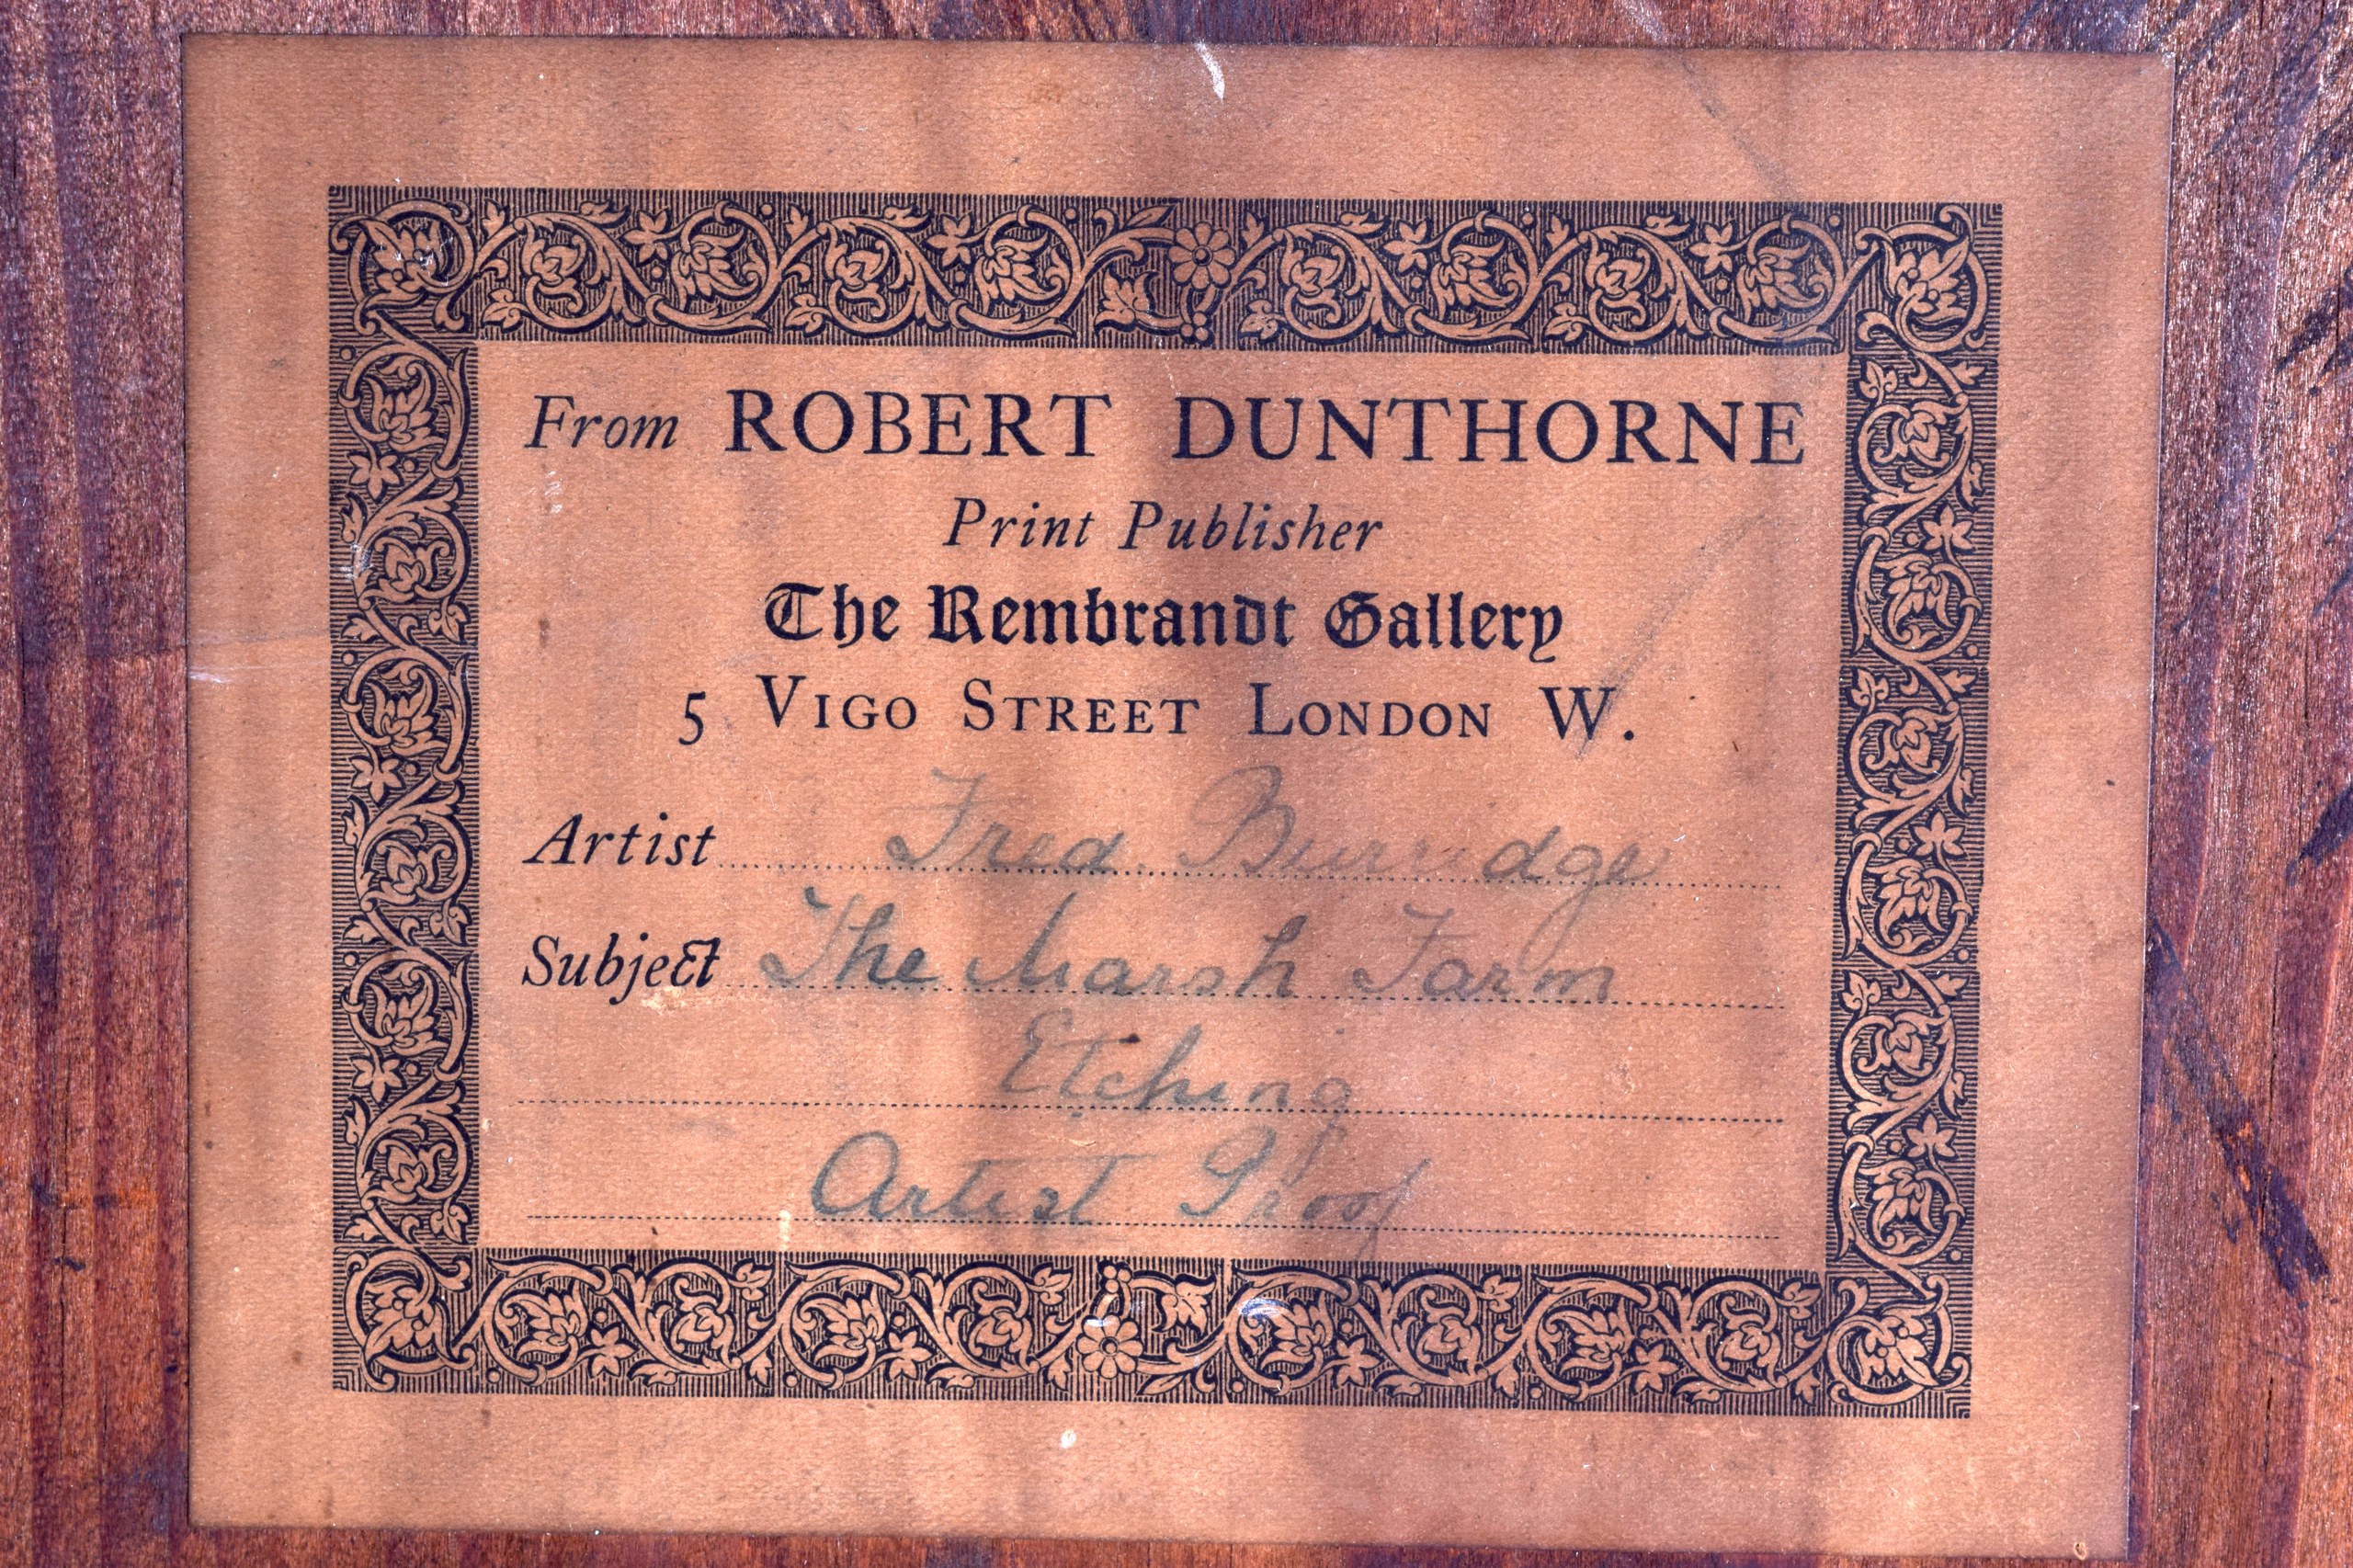 From ROBERT DUNTHORNE
Print Publisher
The Rembrandt Gallery
5 VIGO STREET LONDON W.
Artist Fred. Burridge
Subject The Marsh Farm
Etching
Artist Proof